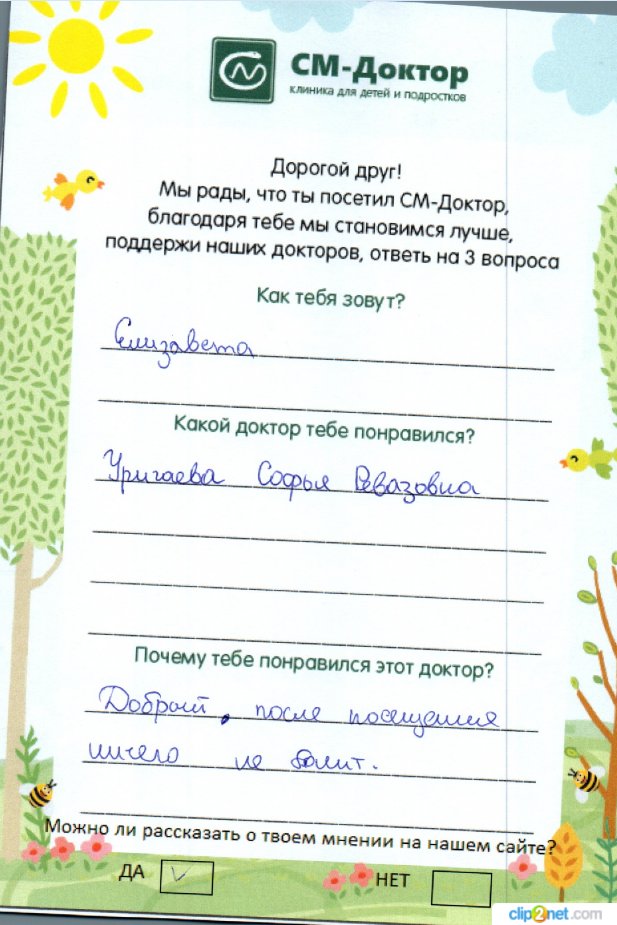 СМ-Доктор
клиника для детей и подростков
Дорогой друг!
Мы рады, что ты посетил СМ-Доктор,
благодаря тебе мы становимся лучше,
поддержи наших докторов, ответь на 3 вопроса
Как тебя зовут?
Елизавета
Какой доктор тебе понравился?
Уригаева Софья Ревазовна
Почему тебе понравился этот доктор?
Добрый, после посещения
ничего не болит.
Можно ли рассказать о твоем мнении на нашем сайте?
ДА НЕТ
clip2net.com